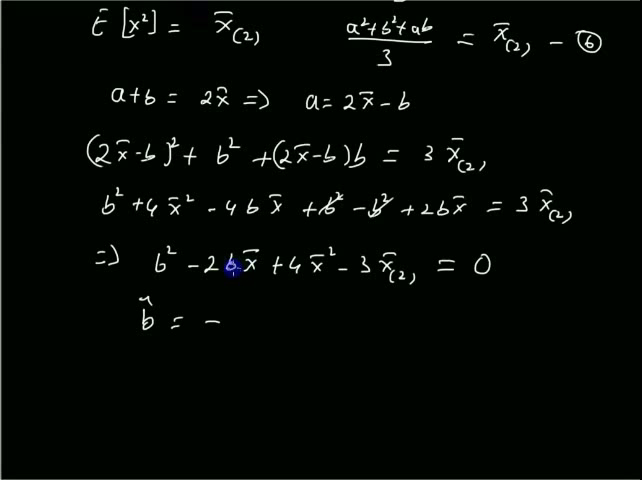 E [x²] = x̄₍₂₎    (a²+b²+ab)/3 = x̄₍₂₎ – ⑥
a+b = 2x̄ => a = 2x̄ – b
(2x̄–b)² + b² + (2x̄–b)b = 3 x̄₍₂₎
b² + 4x̄² – 4bx̄ + b² – b² + 2bx̄ = 3 x̄₍₂₎
=> b² – 2bx̄ + 4x̄² – 3x̄₍₂₎ = 0
b̂ = –